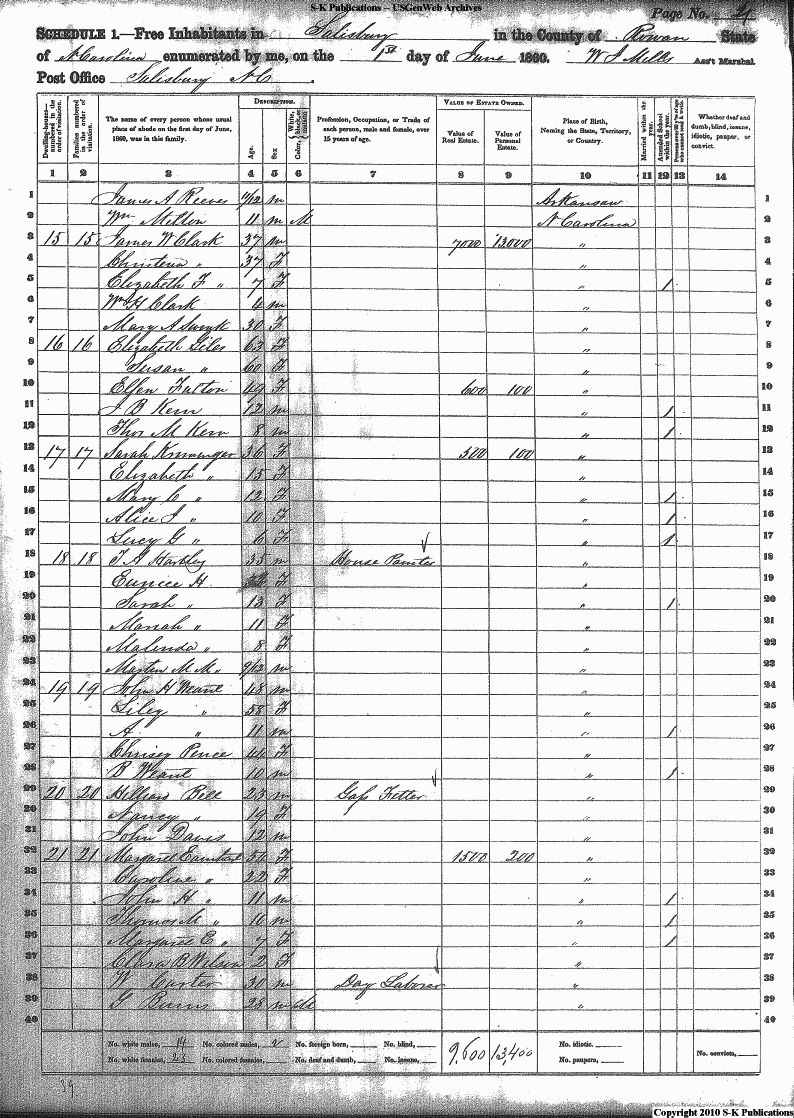 S-K Publications -- USGenWeb Archives
Page No. 
SCHEDULE 1.—Free Inhabitants in Salisbury in the County of Rowan State
of N Carolina enumerated by me, on the 1st day of June 1860. W J Mills Ass't Marshal.
Post Office Salisbury N C.
Dwelling-houses—numbered in the order of visitation. Families numbered in the order of visitation. The name of every person whose usual place of abode on the first day of June, 1860, was in this family. DESCRIPTION. Age. Sex Color, White, black, or mulatto. Profession, Occupation, or Trade of each person, male and female, over 15 years of age. VALUE OF ESTATE OWNED. Value of Real Estate. Value of Personal Estate. Place of Birth, Naming the State, Territory, or Country. Married within the year. Attended School within the year. Persons over 20 y'rs of age who cannot read & write. Whether deaf and dumb, blind, insane, idiotic, pauper, or convict.
1 2 3 4 5 6 7 8 9 10 11 12 13 14
1 James A Reeves 11/12 m Arkansaw 1
2 Wm Milton 11 m M N Carolina 2
3 15 15 James W Clark 37 m 7000 13000 " 3
4 Christena " 37 F " 4
5 Elizabeth F " 7 F " 1 5
6 Wm H Clark 4 m " 6
7 Mary A 30 F " 7
8 16 16 Elizabeth Giles 63 F " 8
9 Susan " 60 F " 9
10 Ellen Fulton 49 F 600 100 " 10
11 J B Kern 12 m " 1 11
12 Thos M Kern 8 m " 1 12
13 17 17 Sarah 36 F 500 100 " 13
14 Elizabeth " 15 F " 14
15 Mary C " 12 F " 1 15
16 Alice J " 10 F " 1 16
17 Lucy G " 6 F " 1 17
18 18 18 J A Hartley 35 m House Painter " 18
19 Eunice H F " 19
20 Sarah " 13 F " 1 20
21 Mariah " 11 F " 21
22 Malinda " 8 F " 22
23 Martin M M " 9/12 m " 23
24 19 19 John H Weant 48 m " 24
25 Liley " 58 F " 25
26 A " 11 m " 1 26
27 Chrisey Pence 44 F " 27
28 B Weant 10 m " 1 28
29 20 20 Hilliard Bell 23 m Gass Fitter " 29
30 Nancy " 19 F " 30
31 John Davis 12 m " 31
32 21 21 Margaret 56 F 1500 200 " 32
33 Caroline " 22 F " 33
34 John H " 11 m " 1 34
35 Thomas M " 10 m " 1 35
36 Margaret E " 7 F " 1 36
37 Clara B Wilson 2 F " 37
38 W Carter 30 m Day Laborer " 38
39 G Burns 28 m " 39
40 40
No. white males, 14 No. colored males, 2 No. foreign born, No. blind, 9,600 13,400 No. idiotic. No. convicts,
No. white females, 23 No. colored females, No. deaf and dumb, No. insane, No. paupers,
39
Copyright 2010 S-K Publications